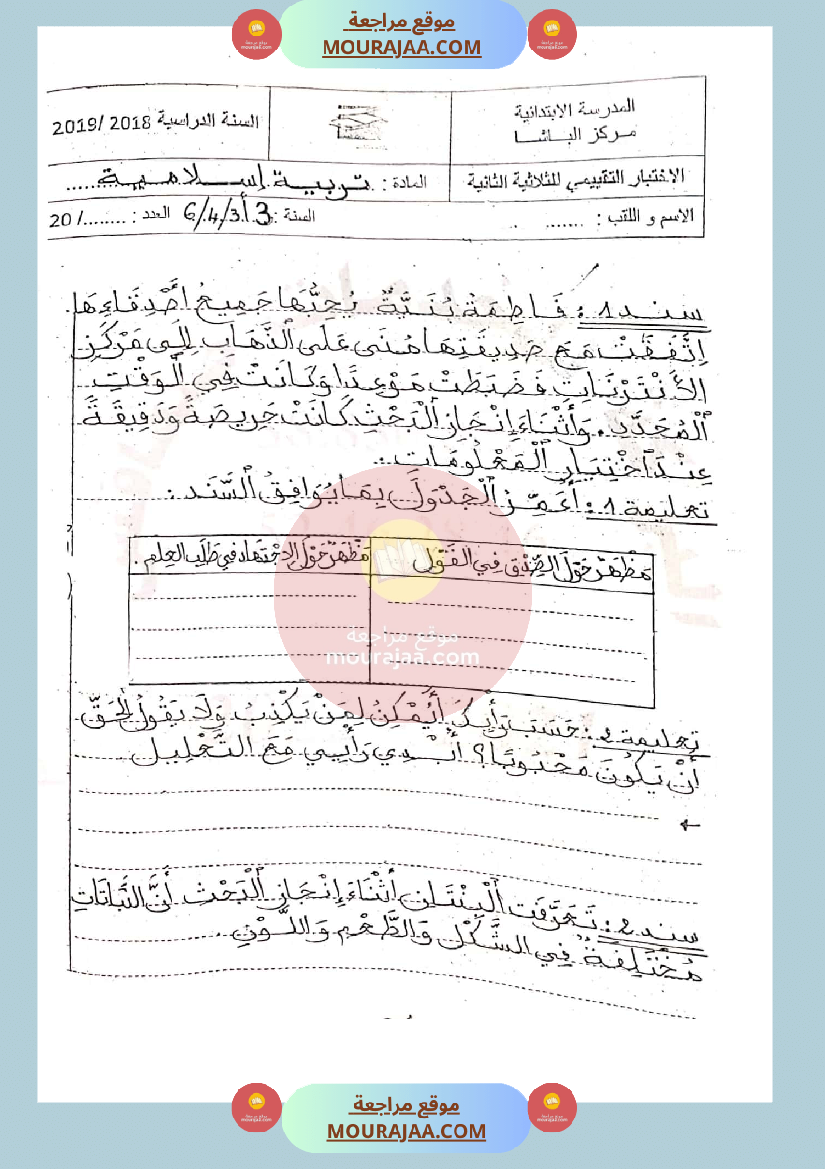 موقع مراجعة
MOURAJAA.COM
المدرسة الابتدائية
مركز الباشا
السنة الدراسية 2018 /2019
الاختبار التقييمي للثلاثية الثانية
المادة : تربية إسلامية
الاسم و اللقب : ........
السنة : 3أ/3/4/6
العدد : ......../ 20
سند 1 : فَاطِمَةُ بُنَيَّةٌ يُحِبُّهَا جَمِيعُ أَصْدِقَاءِهَا
اِتَّفَقَتْ مَعَ صَدِيقَتِهَا مُنَى عَلَى الذَّهَابِ إِلَى مَرْكَزِ
الأَنْتَرْنَاتِ فَضَبَطَتْ مَوْعِدًا وَكَانَتْ فِي الْوَقْتِ
الْمُحَدَّدِ. وَأَثْنَاءَ إِنْجَازِ الْبَحْثِ كَانَتْ حَرِيصَةً وَدَقِيقَةً
عِنْدَ اخْتِيَارِ الْمَعْلُومَاتِ.
تعليمة 1 : أُعَمِّرُ الْجَدْوَلَ بِمَا يُوَافِقُ السَّنَدَ :
مَظْهَرٌ حَوْلَ الصِّدْقِ فِي الْقَوْلِ
مَظْهَرٌ حَوْلَ الاِجْتِهَادِ فِي طَلَبِ العِلْمِ.
موقع مراجعة
mourajaa.com
تعليمة 2 : حَسَبَ رَأْيِكَ أَيُمْكِنُ لِمَنْ يَكْذِبُ وَلَا يَقُولُ الحَقَّ
أَنْ يَكُونَ مَحْبُوبًا؟ أُبْدِي رَأْيِي مَعَ التَّعْلِيلِ
سند 2 : تَعَرَّفَتِ الْبِنْتَانِ أَثْنَاءَ إِنْجَازِ الْبَحْثِ أَنَّ النَّبَاتَاتِ
مُخْتَلِفَةٌ فِي الشَّكْلِ وَالطَّعْمِ وَاللَّوْنِ.
موقع مراجعة
MOURAJAA.COM